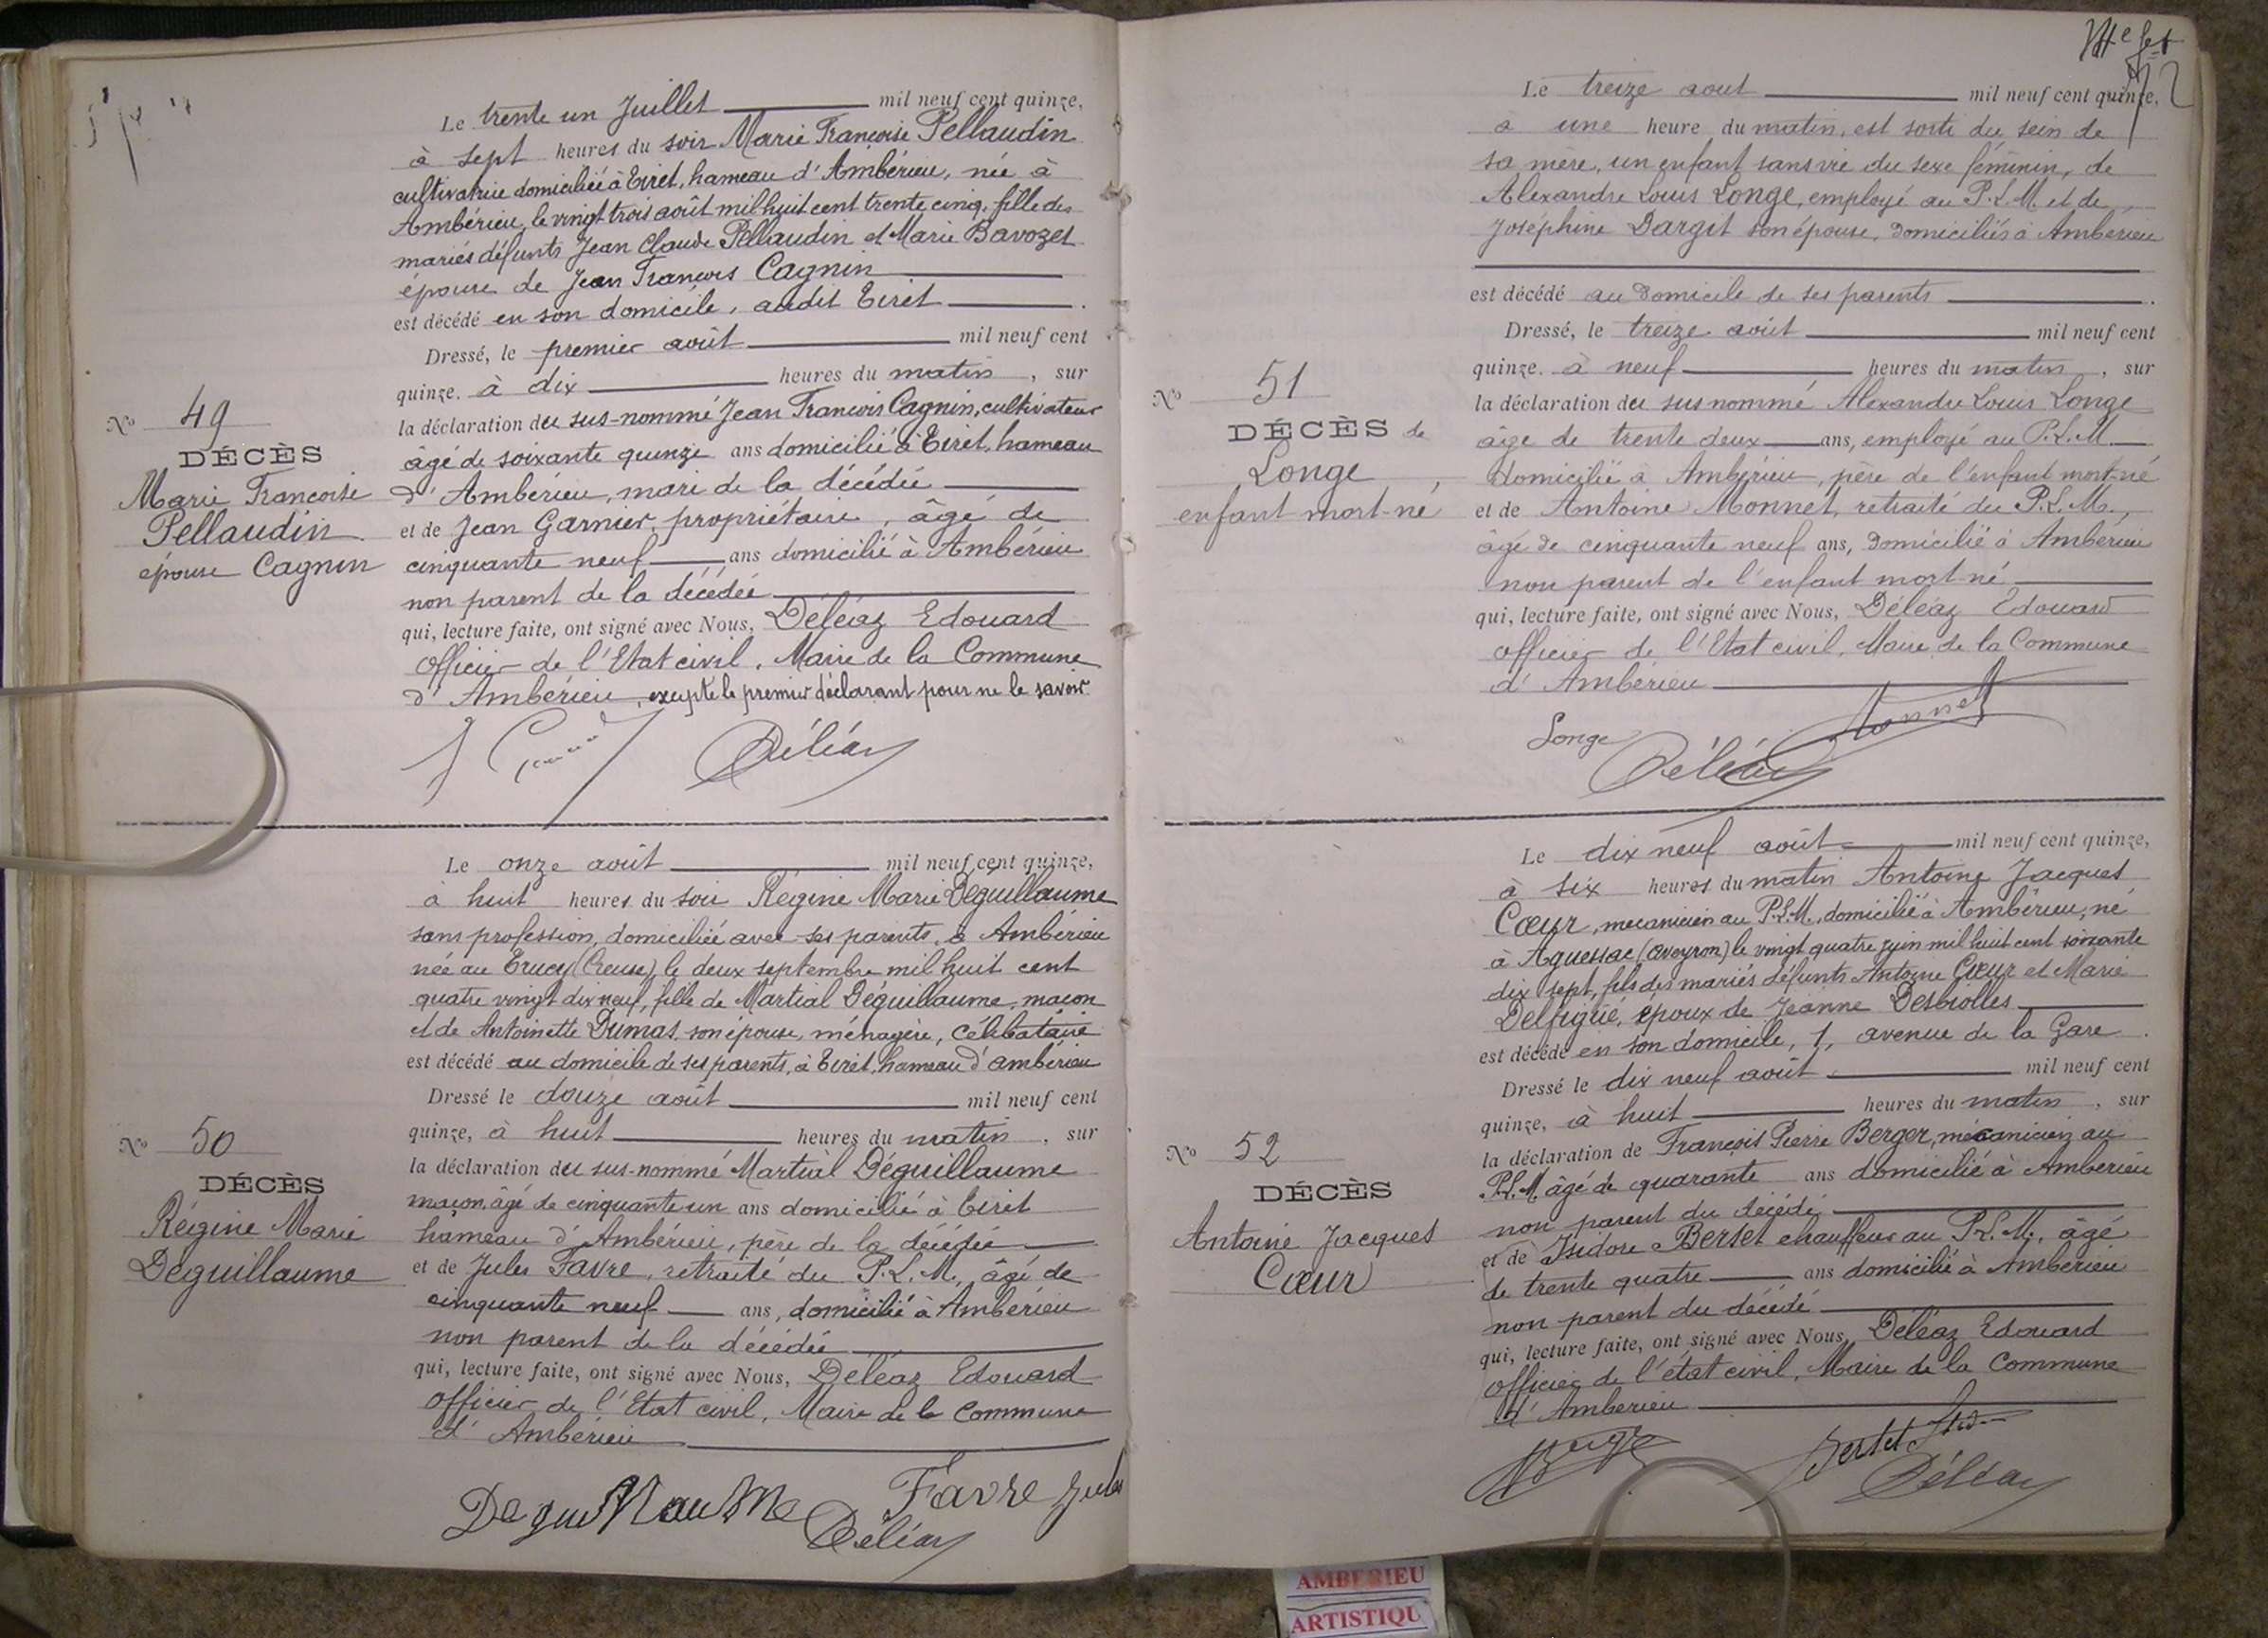 Le trente un Juillet mil neuf cent quinze,
à sept heures du soir Marie Françoise Pellaudin
cultivatrice domiciliée à Tiret, hameau d'Ambérieu, née à
Ambérieu, le vingt trois août mil huit cent trente cinq, fille des
mariés défunts Jean Claude Pellaudin et Marie Bavozet
épouse de Jean François Cagnin
est décédé en son domicile, audit Tiret.
Dressé, le premier août mil neuf cent
quinze, à dix heures du matin, sur
la déclaration du sus-nommé Jean François Cagnin, cultivateur
âgé de soixante quinze ans domicilié à Tiret, hameau
d'Ambérieu, mari de la décédée
et de Jean Garnier, propriétaire, âgé de
cinquante neuf ans domicilié à Ambérieu
non parent de la décédée
qui, lecture faite, ont signé avec Nous, Déléaz Edouard
officier de l'Etat civil, Maire de la Commune
d'Ambérieu, excepté le premier déclarant pour ne le savoir.
Déléaz
No 49
DÉCÈS
Marie Françoise
Pellaudin
épouse Cagnin
Le onze août mil neuf cent quinze,
à huit heures du soir Régine Marie Deguillaume
sans profession, domiciliée avec ses parents à Ambérieu
née au Trucq (Creuse), le deux septembre mil huit cent
quatre vingt dix neuf, fille de Martial Déguillaume, maçon
et de Antoinette Dumas, son épouse, ménagère, célibataire
est décédé au domicile de ses parents, à Tiret, hameau d'ambérieu
Dressé le douze août mil neuf cent
quinze, à huit heures du matin, sur
la déclaration du sus-nommé Martial Déguillaume
maçon, âgé de cinquante un ans domicilié à Tiret
hameau d'Ambérieu, père de la décédée
et de Jules Favre, retraité du P.L.M. âgé de
cinquante neuf ans, domicilié à Ambérieu
non parent de la décédée
qui, lecture faite, ont signé avec Nous, Déléaz Edouard
officier de l'Etat civil, Maire de la Commune
d'Ambérieu
Deguillaume Favre Jules
Déléaz
No 50
DÉCÈS
Régine Marie
Déguillaume
Le treize aout mil neuf cent quinze,
a une heure du matin, est sorti du sein de
sa mère, un enfant sans vie du sexe féminin, de
Alexandre Louis Longe, employé au P.L.M. et de
Joséphine Dargit son épouse, domiciliés à Ambérieu
est décédé au domicile de ses parents.
Dressé, le treize août mil neuf cent
quinze, à neuf heures du matin, sur
la déclaration du sus nommé Alexandre Louis Longe
âge de trente deux ans, employé au P.L.M.
domicilié à Ambérieu, père de l'enfant mort-né
et de Antoine Monnet, retraité du P.L.M.,
âgé de cinquante neuf ans, domicilié à Ambérieu
non parent de l'enfant mort-né
qui, lecture faite, ont signé avec Nous, Déléaz Edouard
officier de l'Etat civil, Maire de la Commune
d'Ambérieu
Longe Monnet
Déléaz
No 51
DÉCÈS de
Longe,
enfant mort-né
Le dix neuf août mil neuf cent quinze,
à six heures du matin Antoine Jacques
Cœur, mecanicien au P.L.M., domicilié à Ambérieu, né
à Aguessac (aveyron) le vingt quatre juin mil huit cent soixante
dix sept, fils des mariés défunts Antoine Cœur et Marie
Delfigue, époux de Jeanne Desbiolles
est décédé en son domicile, 1, avenue de la Gare.
Dressé le dix neuf août mil neuf cent
quinze, à huit heures du matin, sur
la déclaration de François Pierre Berger, mécanicien au
P.L.M. âgé de quarante ans domicilié à Ambérieu
non parent du décédé
et de Isidore Bertet chauffeur au P.L.M., âgé
de trente quatre ans domicilié à Ambérieu
non parent du décédé
qui, lecture faite, ont signé avec Nous, Déléaz Edouard
officier de l'état civil, Maire de la Commune
d'Ambérieu
Berger Bertet
Déléaz
No 52
DÉCÈS
Antoine Jacques
Cœur
AMBERIEU
ARTISTIQU